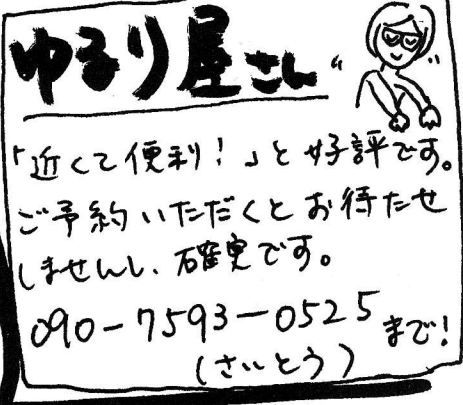 ゆるり屋さん
「近くて便利！」と好評です。
ご予約いただくとお待たせ
しませんし、確実です。
090-7593-0525 まで！
(さいとう)